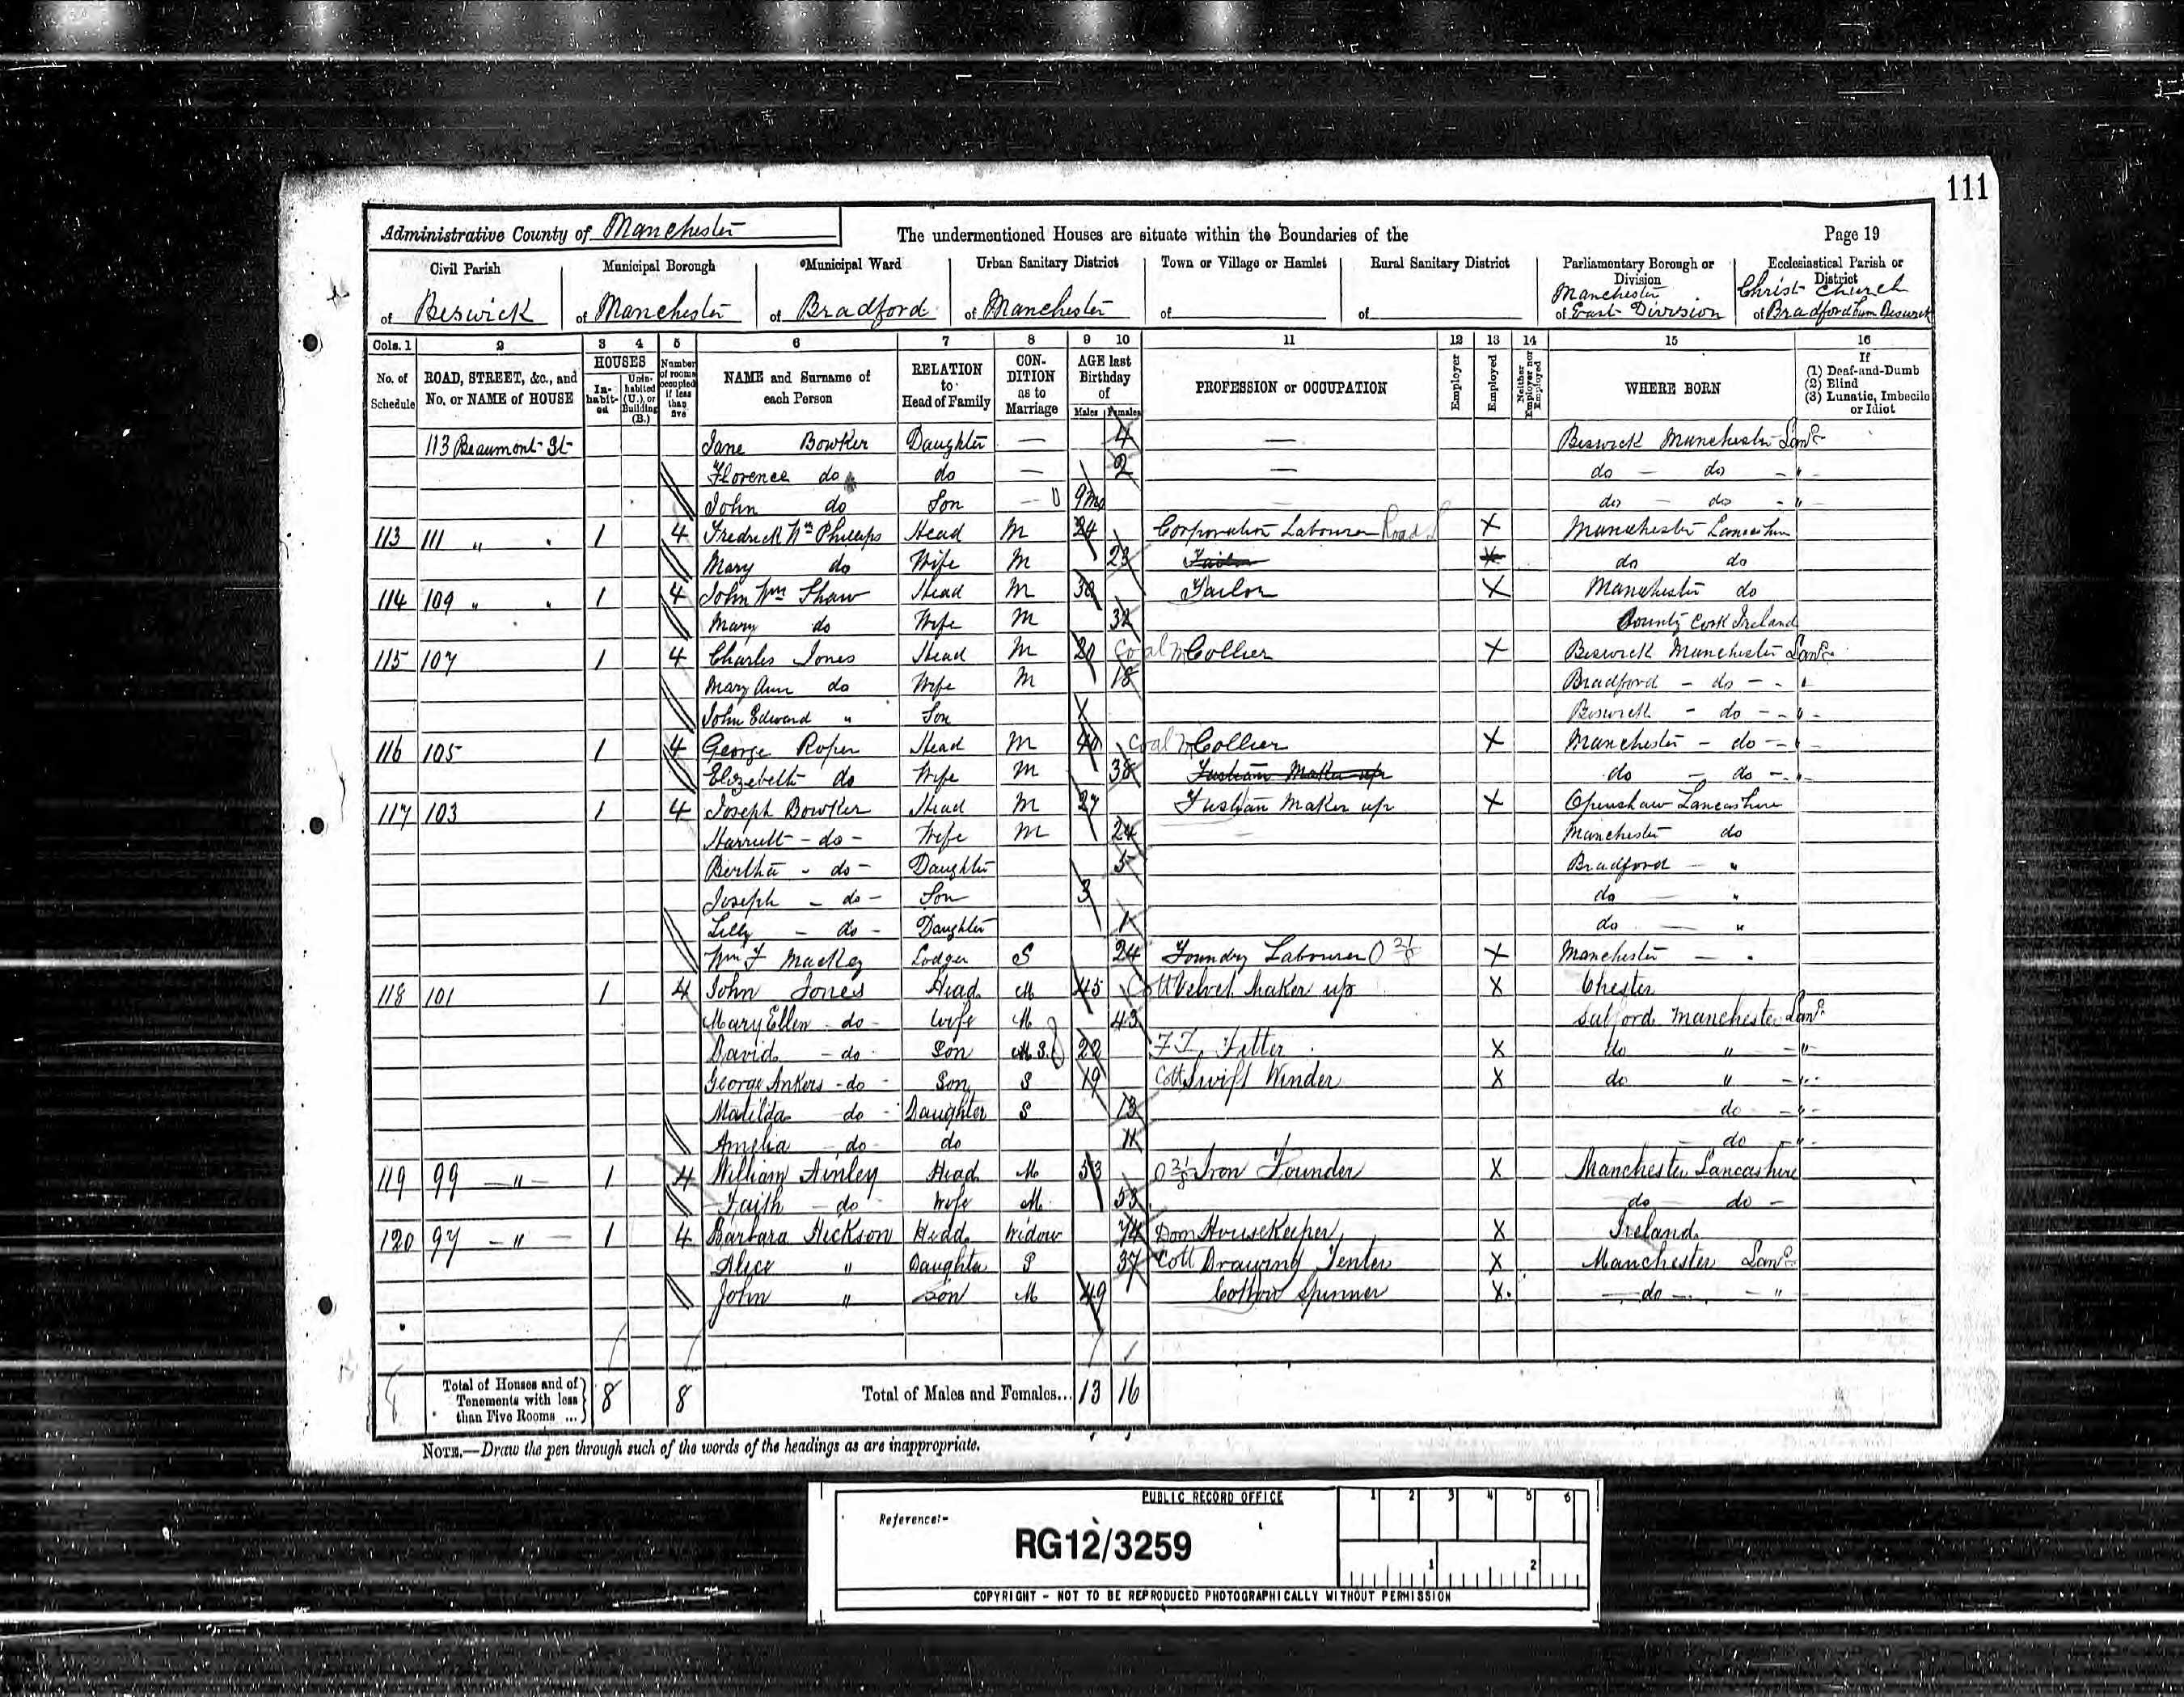 111
Administrative County of Manchester The undermentioned Houses are situate within the Boundaries of the Page 19
Civil Parish Municipal Borough Municipal Ward Urban Sanitary District Town or Village or Hamlet Rural Sanitary District Parliamentary Borough or Division Ecclesiastical Parish or District
of Beswick of Manchester of Bradford of Manchester of of of Manchester East Division of Christ Church Bradford Cum Beswick
Cols. 1 2 3 4 5 6 7 8 9 10 11 12 13 14 15 16
No. of Schedule ROAD, STREET, &c., and No. or NAME of HOUSE HOUSES Inhabited Uninhabited (U.), or Building (B.) Number of rooms occupied if less than five NAME and Surname of each Person RELATION to Head of Family CONDITION as to Marriage AGE last Birthday of Males Females PROFESSION or OCCUPATION Employer Employed Neither Employer nor Employed WHERE BORN If (1) Deaf-and-Dumb (2) Blind (3) Lunatic, Imbecile or Idiot
113 Beaumont St Jane Bowker Daughter — 4 — Beswick Manchester Lanc
Florence do do — 2 — do — do - "
John do Son — 9mo do — do - "
113 111 " " 1 4 Fredrick Wm Phillips Head M 24 Corporation Labourer Road X Manchester Lancashire
Mary do Wife M 23 Tailor X do do
114 109 " " 1 4 John Wm Shaw Head M Tailor X Manchester do
Mary do Wife M 32 County Cork Ireland
115 107 1 4 Charles Jones Head M 20 Coal Collier X Beswick Manchester Lanc
Mary Ann do Wife M 18 Bradford - do - - "
John Edward " Son Beswick - do - - " -
116 105 1 4 George Roper Head M 40 Coal Collier X Manchester - do - -
Elizebeth do Wife M 38 Fustian Maker up do - do - - "
117 103 1 4 Joseph Bowker Head M 27 Fustian Maker up X Openshaw Lancashire
Harriett - do - Wife M 24 Manchester do
Bertha - do - Daughter 5 Bradford — "
Joseph - do - Son 3 do — "
Lilly - do - Daughter 1 do — "
Wm F Mackey Lodger S 24 Foundry Labourer O 21/8 X Manchester — "
118 101 1 4 John Jones Head M 45 Cott Velvet Maker up X Chester
Mary Ellen - do - Wife M 43 Salford Manchester Lanc
David - do - Son M S. 22 F.T. Fitter X do " - "
George Ankers - do - Son S 19 Cott Swift Winder X do " - "
Matilda do - Daughter S 13 do - " -
Amelia - do - do 11 - do - " -
119 99 — " — 1 4 William Ainley Head M 53 O 21/8 Iron Founder X Manchester Lancashire
Faith - do - Wife M 53 do — do -
120 97 - " — 1 4 Barbara Hickson Head Widow 74 Dom Housekeeper X Ireland
Alice " Daughter S 37 Cott Drawing Tenter X Manchester Lanc
John " Son M 49 Cotton Spinner X. — do — - "
Total of Houses and of Tenements with less than Five Rooms ... 8 8 Total of Males and Females... 13 16
NOTE.—Draw the pen through such of the words of the headings as are inappropriate.
PUBLIC RECORD OFFICE 1 2 3 4 5 6
Reference:-
RG12/3259
1 2
COPYRIGHT - NOT TO BE REPRODUCED PHOTOGRAPHICALLY WITHOUT PERMISSION